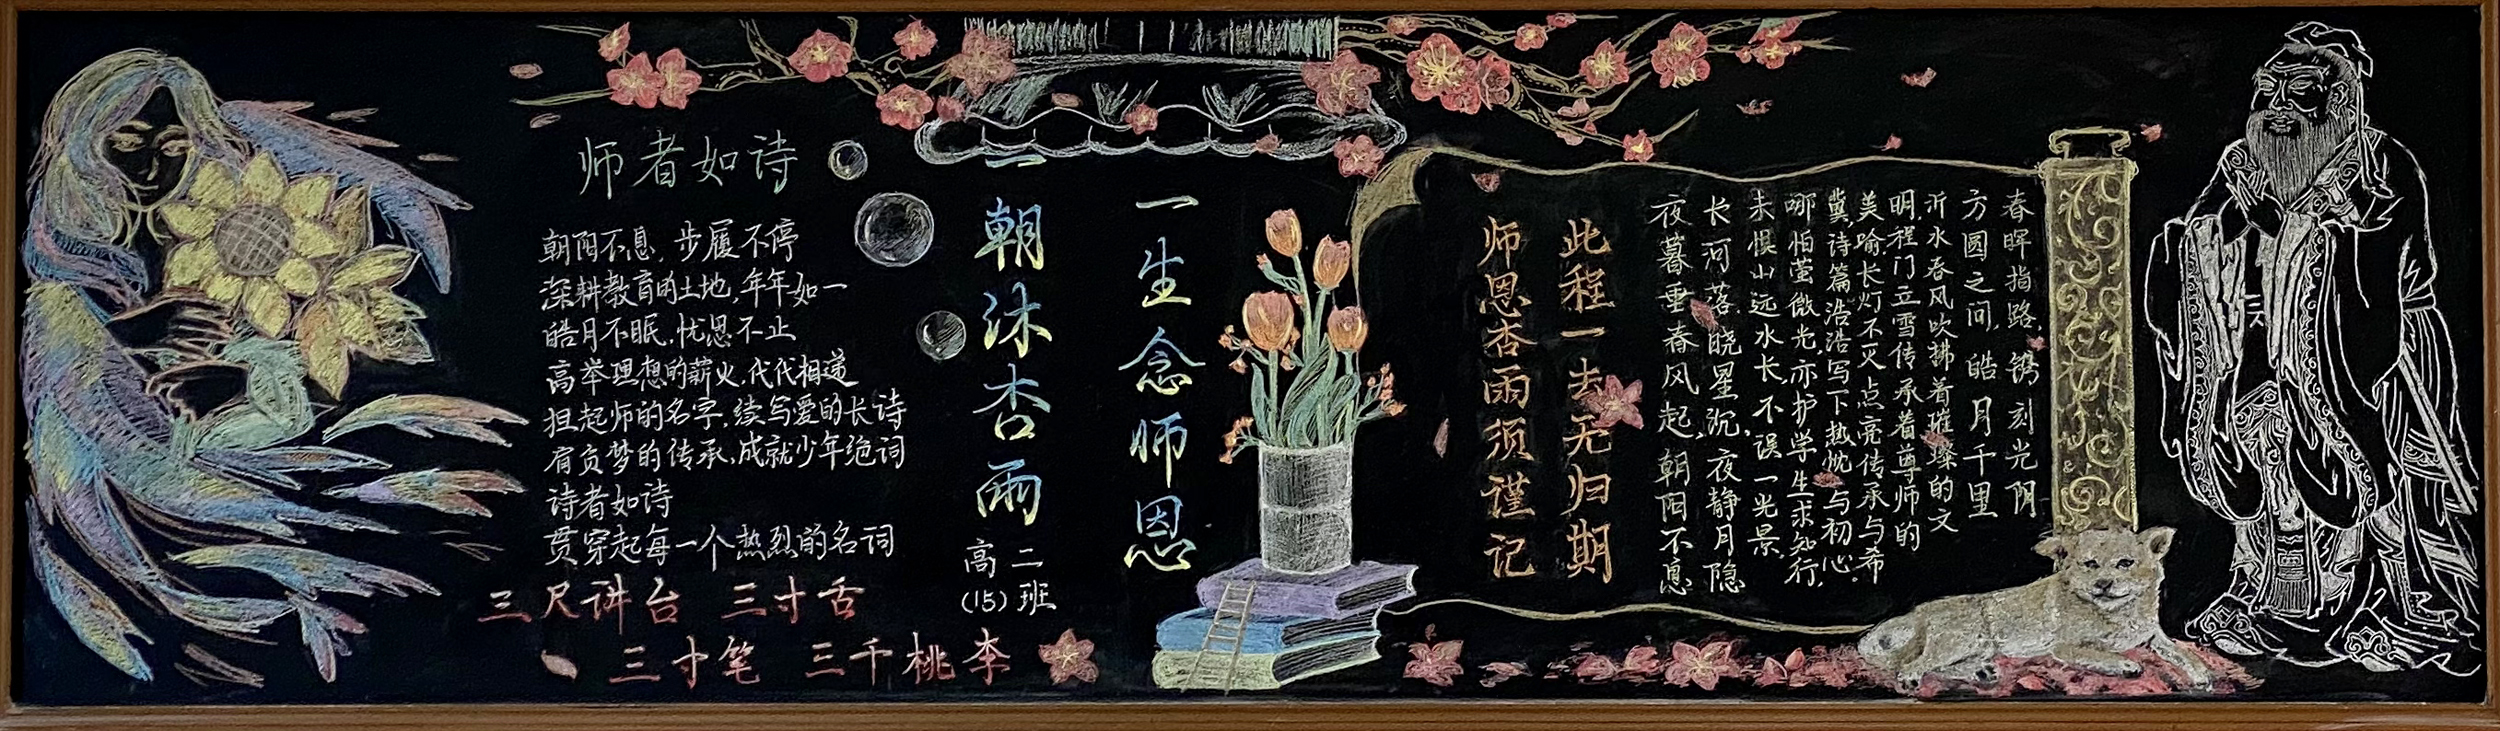 师者如诗
朝阳不息，步履不停
深耕教育的土地，年年如一
皓月不眠，忧思不止
高举理想的薪火，代代相递
担起师的名字，续写爱的长诗
有负梦的传承，成就少年绝词
诗者如诗
贯穿起每一个热烈的名词
三尺讲台 三寸舌
三寸笔 三千桃李
一朝沐杏雨
一生念师恩
高二
(15)班
此程一去无归期
师恩杏雨须谨记
春晖指路，镌刻光阴
方圆之间，皓月千里
沂水春风吹拂着璀璨的文
明，程门立雪传承着尊师的
美喻，长灯不灭点亮传承与希
冀，诗篇浩浩写下热忱与初心。
哪怕萤微光，亦护学生求知行，
未惧山远水长，不误一光景，
长河落，晓星沉，夜静月隐
夜暮垂春风起，朝阳不息